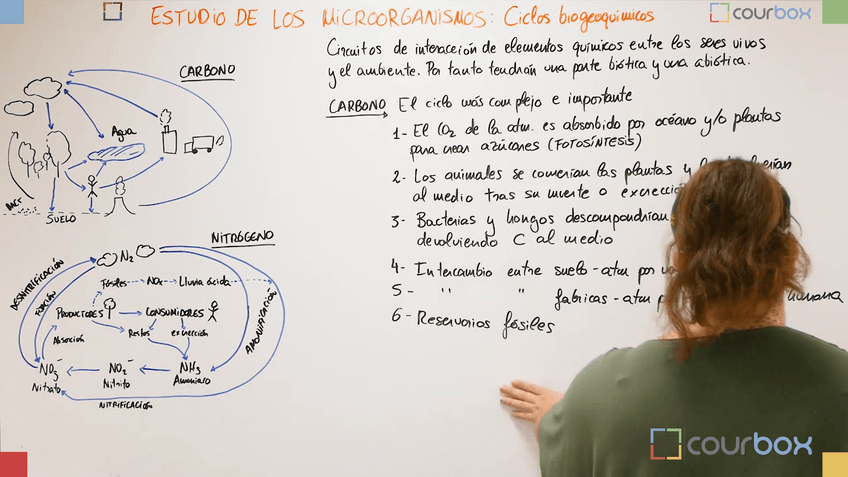 ESTUDIO DE LOS MICROORGANISMOS: Ciclos biogeoquímicos
courbox
Circuitos de interacción de elementos químicos entre los seres vivos
y el ambiente. Por tanto tendrán una parte biótica y una abiótica.
CARBONO El ciclo más complejo e importante
1- El CO2 de la atm. es absorbido por océano y/o plantas
para crear azúcares (FOTOSÍNTESIS)
2- Los animales se comerían las plantas y
al medio tras su muerte o excreción
3- Bacterias y hongos descompondrían
devolviendo C al medio
4- Intercambio entre suelo-atm por
5- " " fabricas-atm humana
6- Reservorios fósiles
CARBONO
Agua
BACT
SUELO
NITRÓGENO
N2
DESNITRIFICACIÓN
FIJACIÓN
Fósiles NOx Lluvia ácida
PRODUCTORES CONSUMIDORES
AMONIFICACIÓN
Absorción Restos excreción
NO3- NO2- NH3
Nitrato Nitrito Amoniaco
NITRIFICACIÓN
courbox